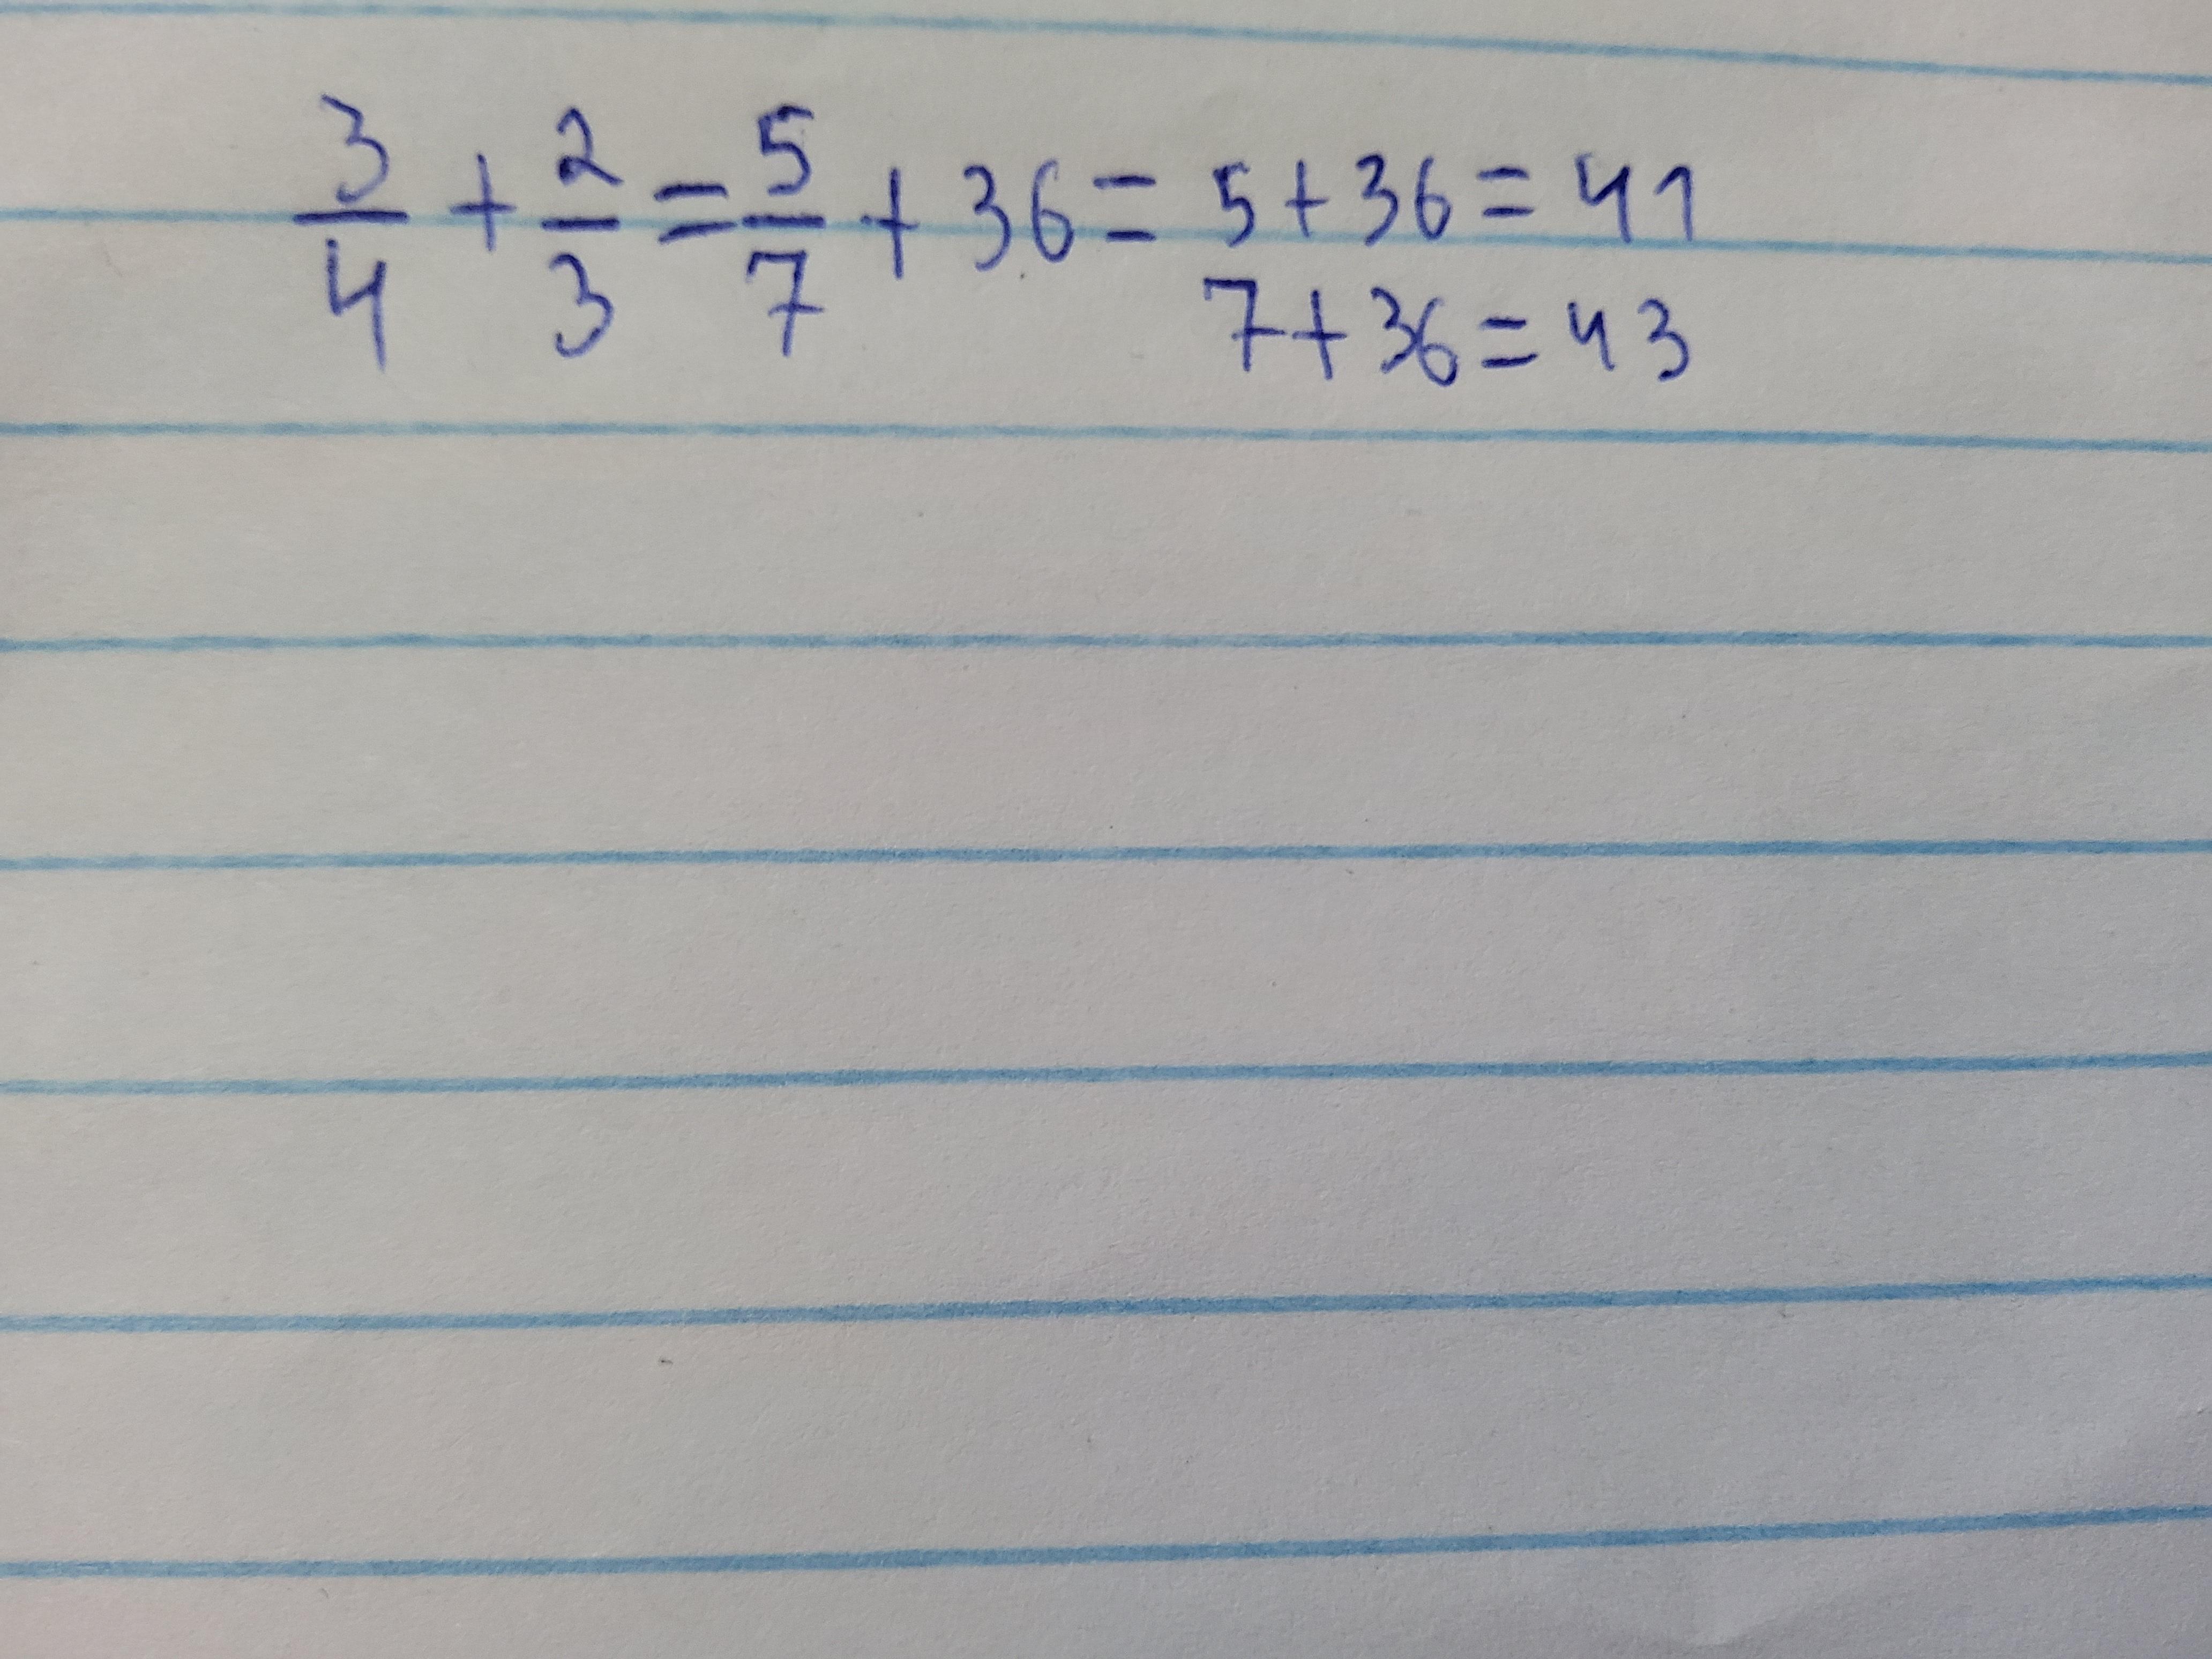 3/4 + 2/3 = 5/7 + 36 = 5 + 36 = 41
7 + 36 = 43